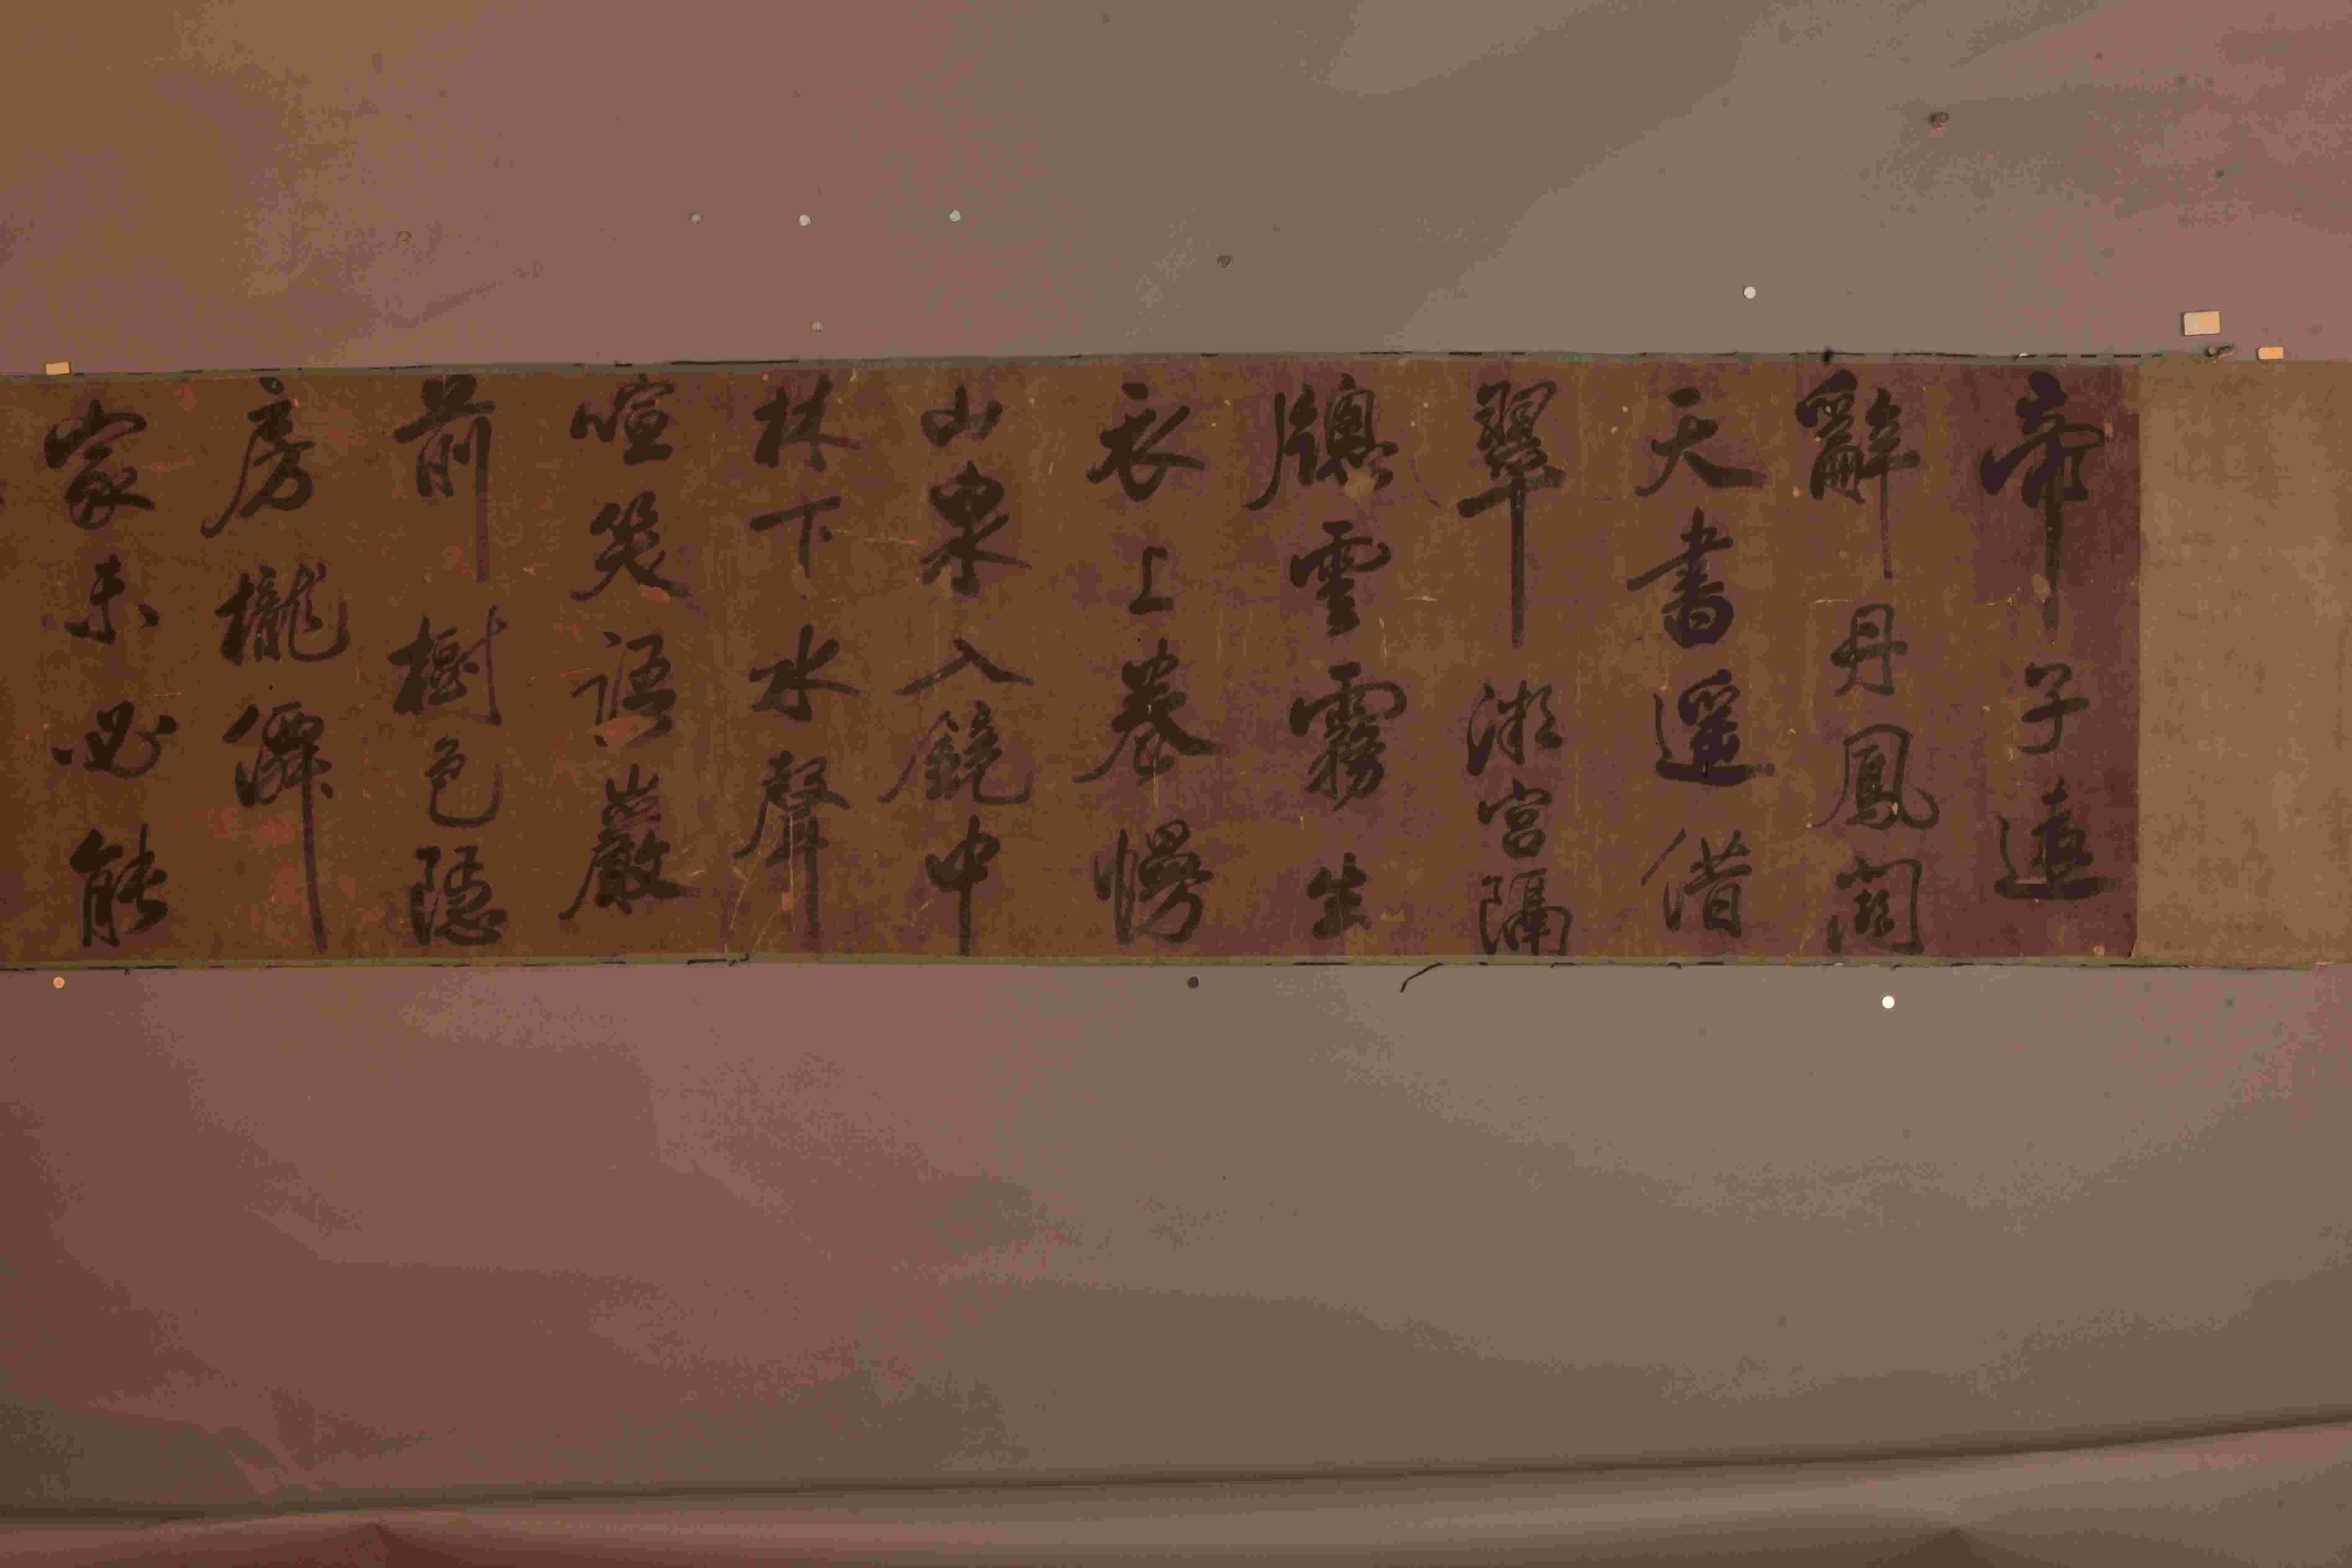 帝子遠
辭丹鳳闕
天書遥借
翠微宮隔
牕雲霧生
衣上卷幔
山泉入鏡中
林下水聲
喧笑語巖
前樹色隱
房櫳僊
家未必能